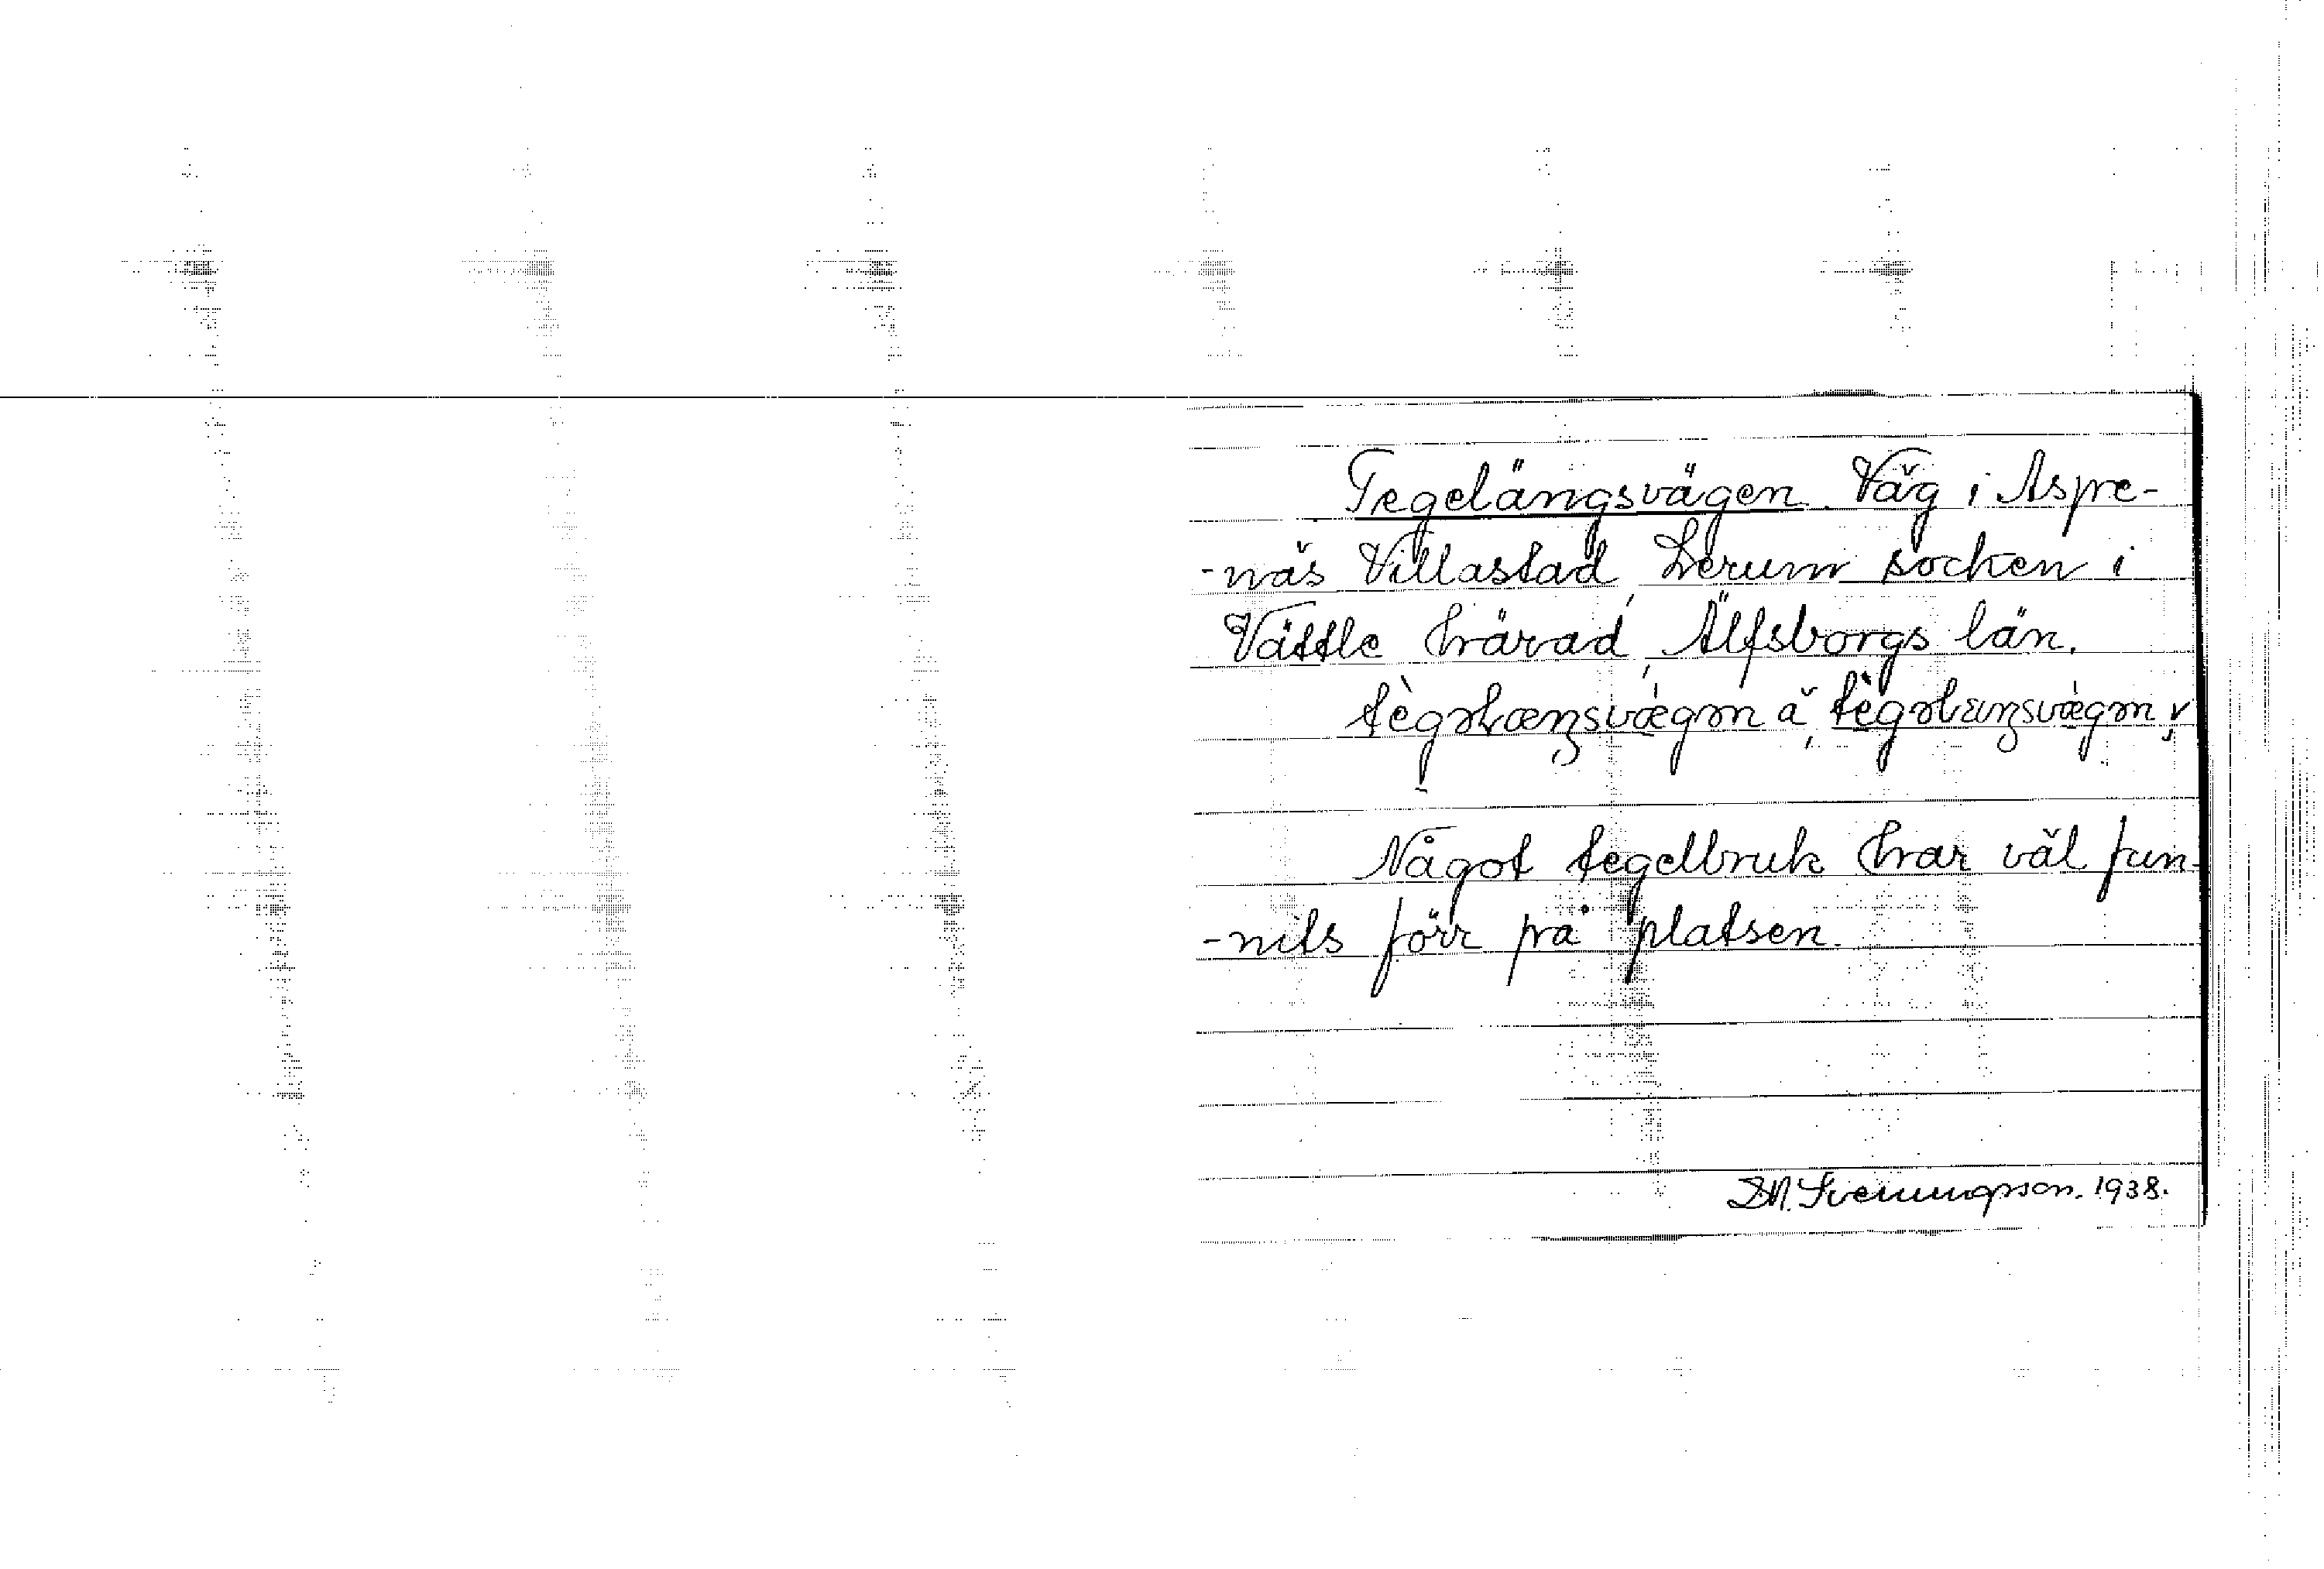 Tegelängsvägen. Väg i Aspe-
-näs Villastad, Lerum socken i
Vättle härad, Älfsborgs län.
tègəlæŋsvægən å, tègəlæŋsvægən,
Något tegelbruk har väl fun-
-nits förr på platsen.
Svenungsson. 1938.